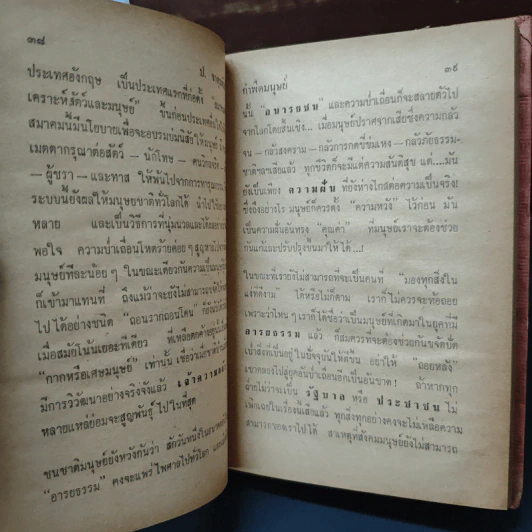 ๓๘
ป.
ประเทศอังกฤษ เป็นประเทศแรกที่ก่อตั้ง
เคราะห์สัตว์และมนุษย์" ขึ้นก่อนประเทศ
สมาคมนี้มีนโยบายเพื่อจะอบรมบ่มนิสัยให้มนุษย์
เมตตากรุณาต่อสัตว์ — นักโทษ —
— ผู้ชรา — และทาส ให้พ้นไปจากการทารุณกรรม
ระบบนี้ยังผลให้มนุษยชาติทั่วโลกได้
หลาย และเป็นวิธีการที่นุ่มนวลและได้ผล
พอใจ ความป่าเถื่อนโหดร้ายค่อย ๆ สูญหายไป
มนุษย์ทีละน้อย ๆ ในขณะเดียวกันความเป็น
ก็เข้ามาแทนที่ ถึงแม้ว่าจะยังไม่สามารถ
ไปได้อย่างชนิด "ถอนรากถอนโคน" ก็ยังนับว่า
เมื่อสมัยโน้นเยอะทีเดียว ที่เหลือตกค้างอยู่
"กากหรือเศษมนุษย์" เท่านั้น เชื่อว่า
มีการวิวัฒนาอย่างจริงจังแล้ว เจ้าความ
หลายแหล่ย่อมจะสูญพันธุ์ ไปในที่สุด
ชนชาติมนุษย์ยังหวังกันว่า สักวันหนึ่งในอนาคต
"อารยธรรม" คงจะแพร่ไพศาลไปทั่วโลก
๓๙
กำพืดมนุษย์
นั้น "อนารยชน" และความป่าเถื่อนก็จะสลายตัวไป
จากโลกโดยสิ้นเชิง... เมื่อมนุษย์ปราศจากเสียซึ่งความกลัว
จน — กลัวสงคราม — กลัวการกดขี่ข่มเหง — กลัวภัยธรรม-
ชาติฯลฯเสียแล้ว ทุกชีวิตก็จะมีแต่ความสันติสุข แต่....มัน
ยังเป็นเพียง ความฝัน ที่ยังห่างไกลต่อความเป็นจริง!
ซึ่งถึงอย่างไร มนุษย์ก็ควรตั้ง "ความหวัง" ไว้ก่อน มัน
เป็นความฝันอันทรง "คุณค่า" ที่มนุษย์เราจะต้องช่วย
กันแก้และปรับปรุงขึ้นมาให้ได้ ....!
ในขณะที่เรายังไม่สามารถที่จะเป็นคนที่ "มองทุกสิ่งใน
แง่ที่ดีงาม" ได้หรือไม่ก็ตาม เราก็ไม่ควรจะท้อถอย
เพราะว่าไหน ๆ เราก็ได้ชื่อว่าเป็นมนุษย์ที่เกิดมาในยุคที่มี
อารยธรรม แล้ว ก็สมควรที่จะต้องช่วยกันขจัดปัด
เป่าสิ่งที่เป็นอยู่ในปัจจุบันให้ดีขึ้น อย่าให้ "ถอยหลัง"
เข้าคลองไปสู่ยุคอันป่าเถื่อนอีกเป็นอันขาด! ถ้าหากทุก
ฝ่ายไม่ว่าจะเป็น รัฐบาล หรือ ประชาชน ไม่
เพิกเฉยในเรื่องนี้เสียแล้ว ทุกสิ่งทุกอย่างคงจะไม่เหลือความ
สามารถของเราไปได้ สาเหตุที่สังคมมนุษย์ยังไม่สามารถ